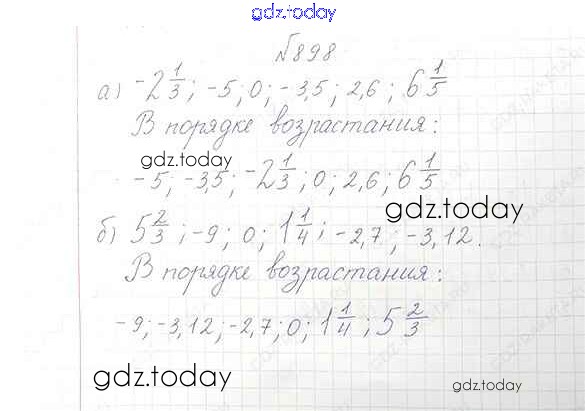 gdz.today
№898
а) -2 1/3; -5; 0; -3,5; 2,6; 6 1/5
В порядке возрастания:
gdz.today
-5; -3,5; -2 1/3; 0; 2,6; 6 1/5
gdz.today
б) 5 2/3; -9; 0; 1 1/4; -2,7; -3,12.
В порядке возрастания:
-9; -3,12; -2,7; 0; 1 1/4; 5 2/3
gdz.today
gdz.today